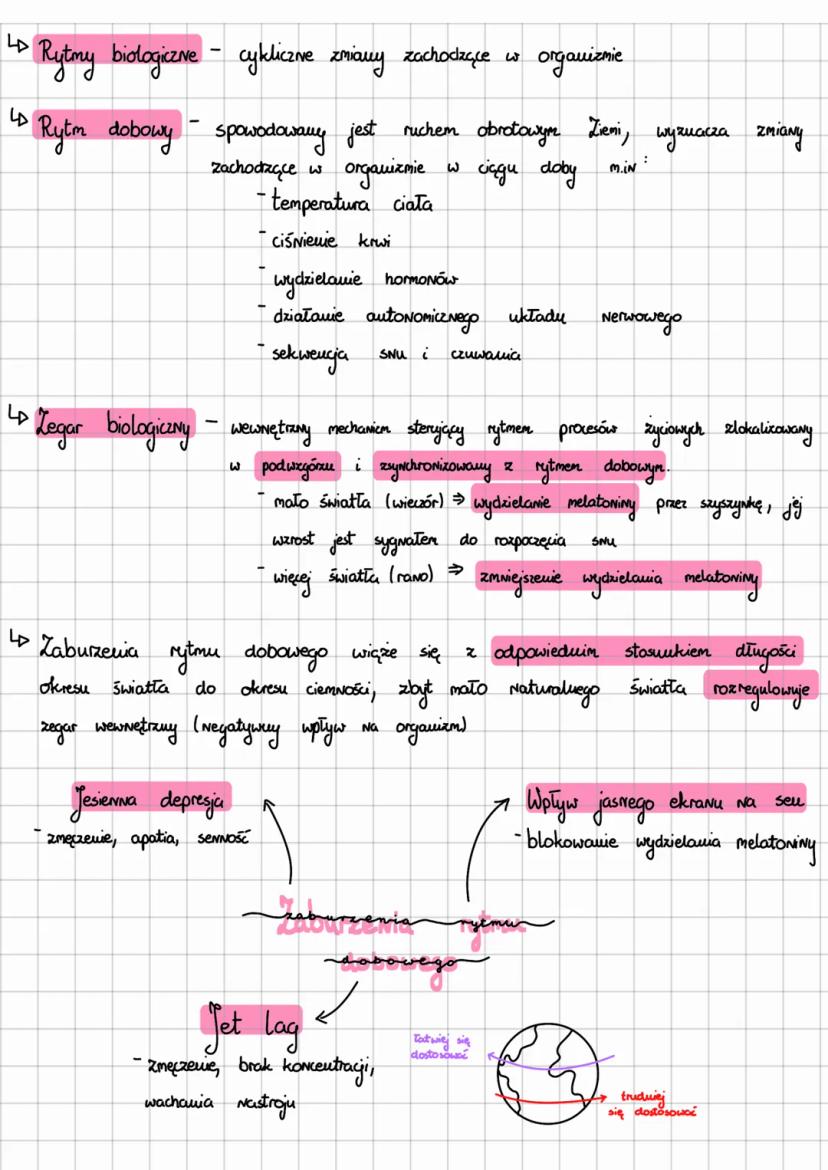 ↳ Rytmy biologiczne - cykliczne zmiany zachodzące w organizmie
↳ Rytm dobowy - spowodowany jest ruchem obrotowym Ziemi, wyznacza zmiany
zachodzące w organizmie w ciągu doby m.in:
- temperatura ciała
- ciśnienie krwi
- wydzielanie hormonów
- działanie autonomicznego układu nerwowego
- sekwencja snu i czuwania
↳ Zegar biologiczny - wewnętrzny mechanizm sterujący rytmem procesów życiowych zlokalizowany
w podwzgórzu i zsynchronizowany z rytmem dobowym.
- mało światła (wieczór) ⇒ wydzielanie melatoniny przez szyszynkę, jej
wzrost jest sygnałem do rozpoczęcia snu
- więcej światła (rano) ⇒ zmniejszenie wydzielania melatoniny
↳ Zaburzenia rytmu dobowego wiąże się z odpowiednim stosunkiem długości
okresu światła do okresu ciemności, zbyt mało naturalnego światła rozregulowuje
zegar wewnętrzny (negatywny wpływ na organizm)
Jesienna depresja
- zmęczenie, apatia, senność
Wpływ jasnego ekranu na sen
- blokowanie wydzielania melatoniny
Zaburzenia rytmu
dobowego
Jet lag
- zmęczenie, brak koncentracji,
wachania nastroju
łatwiej się
dostosować
trudniej
się dostosować